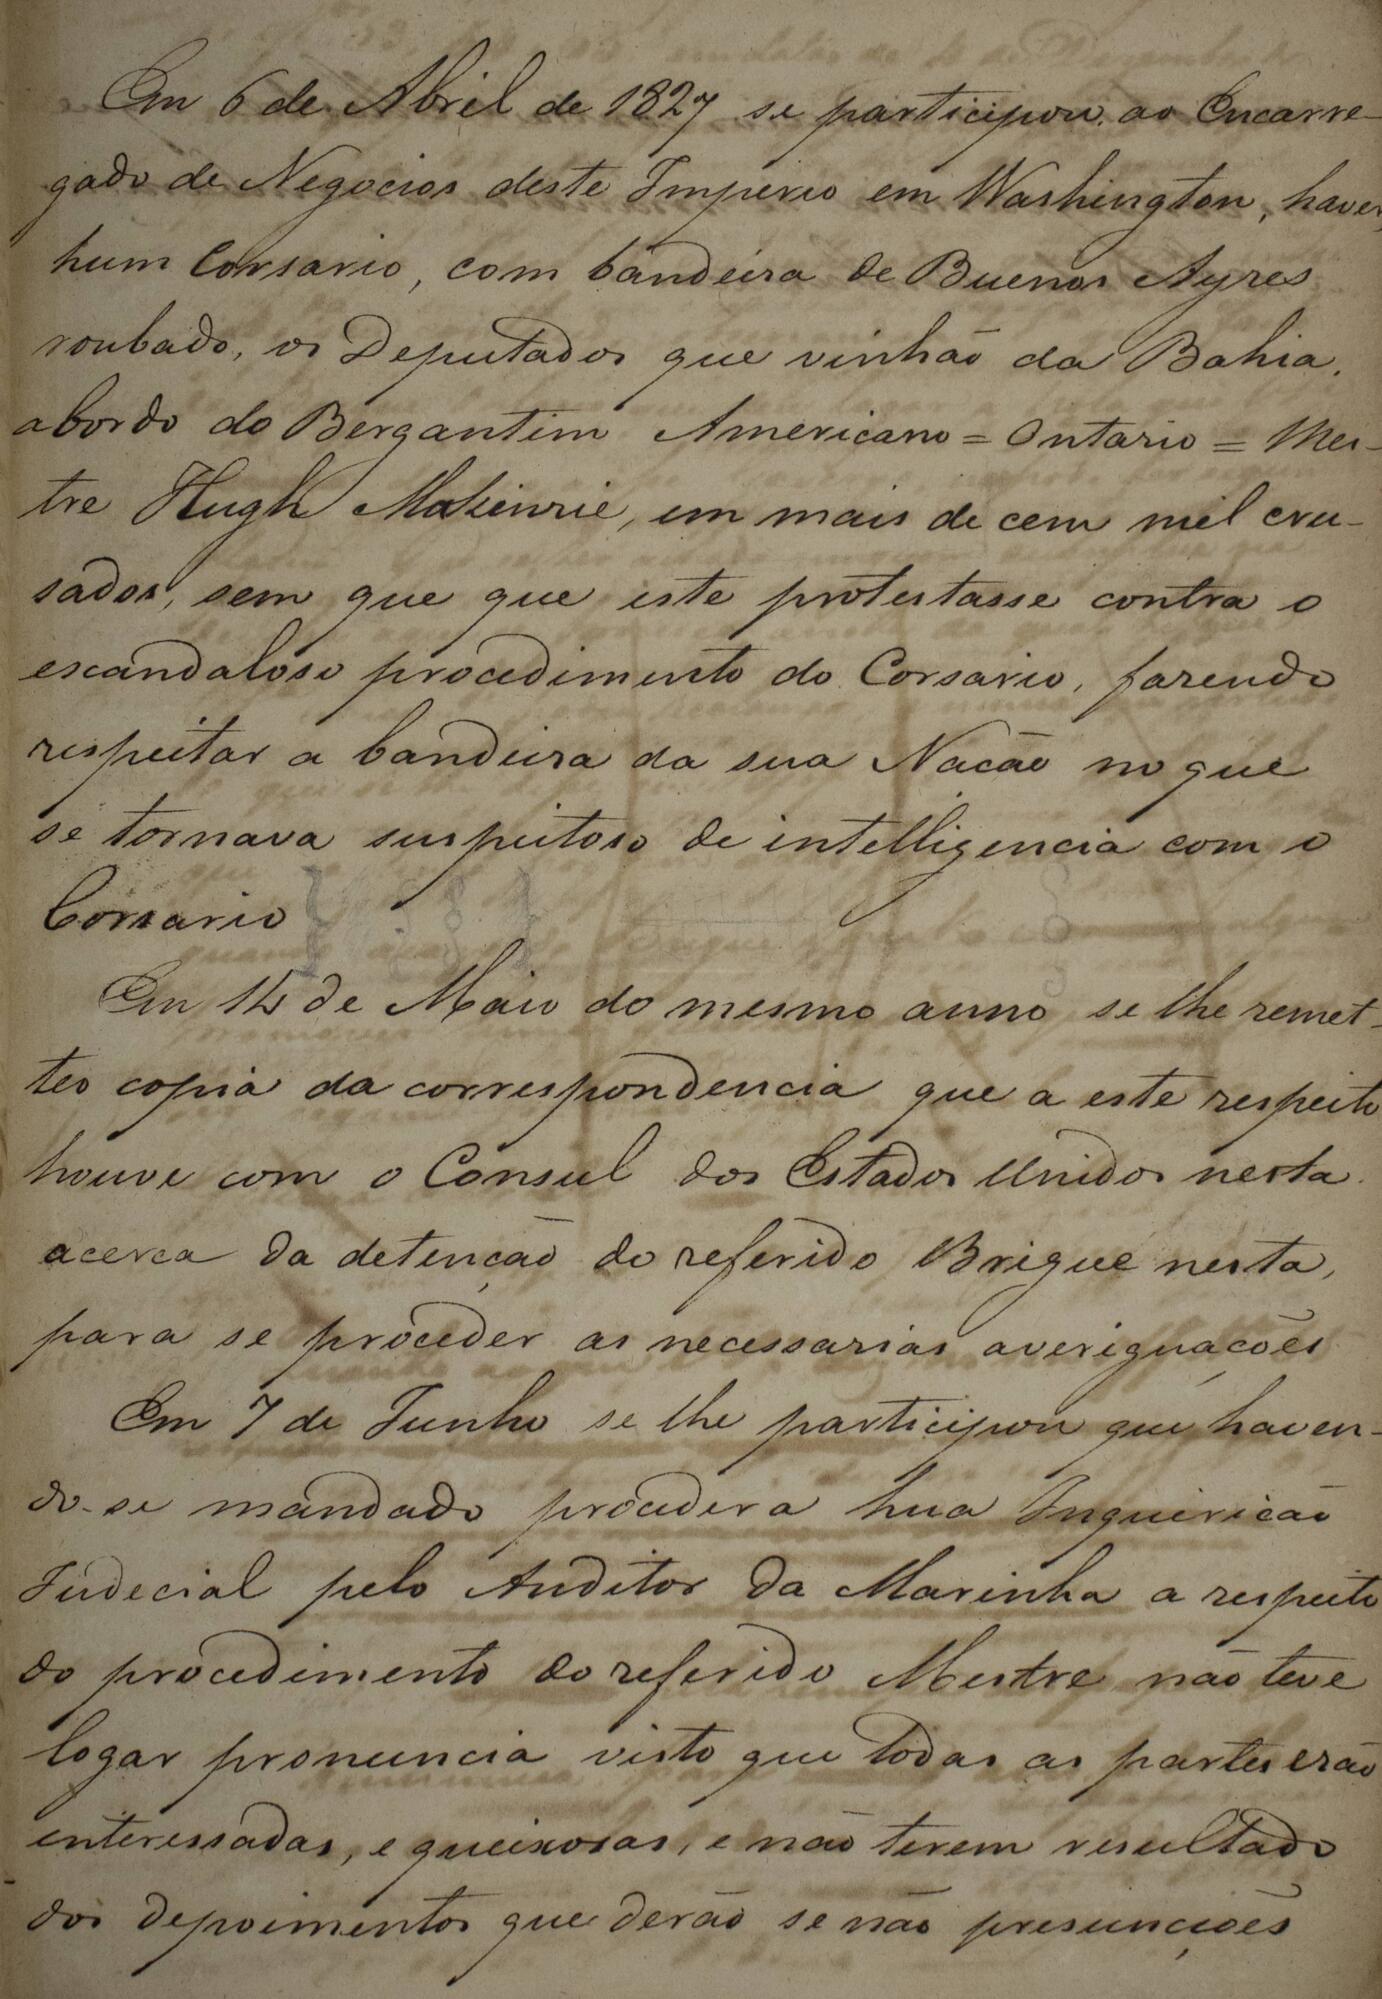 Em 6 de Abril de 1827 se participou ao Encarre-
gado de Negocios deste Imperio em Washington, haver
hum Corsario, com bandeira de Buenos Ayres
roubado, os Deputados que vinhão da Bahia,
abordo do Bergantim Americano = Ontario = Mes-
tre Hugh Makenrie, em mais de cem mil cru-
sados, sem que que este protestasse contra o
escandaloso procedimento do Corsario, fazendo
respeitar a bandeira da sua Nacão no que
se tornava suspeitoso de intelligencia com o
Corsario
Em 14 de Maio do mesmo anno se lhe remet-
teo copia da correspondencia que a este respeito
houve com o Consul dos Estados Unidos nesta
acerca da detenção do referido Brigue nesta,
para se proceder as necessarias averiguações
Em 7 de Junho se lhe participou que haven-
do-se mandado proceder a hua Inquiricão
Judecial pelo Auditor da Marinha a respeito
do procedimento do referido Mestre não teve
logar pronuncia visto que todas as partes erão
interessadas, e queixosas, e não terem resultado
dos depoimentos que derão se não presunções